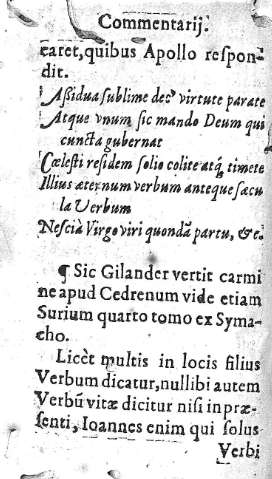 Commentarij.
taret, quibus Apollo respon-
dit.
Aßidua sublime dec9 virtute parate
Atque vnum sic mando Deum qui
cuncta gubernat
Cœlesti residem solio colite atq; timete
Illius æternum verbum anteque sæcu
la Verbum
Nescia Virgo viri quondã partu, &c.
¶ Sic Gilander vertit carmi
ne apud Cedrenum vide etiam
Surium quarto tomo ex Syma-
cho.
Licèt multis in locis filius
Verbum dicatur, nullibi autem
Verbũ vitæ dicitur nisi in præ-
senti, Ioannes enim qui solus
Verbi